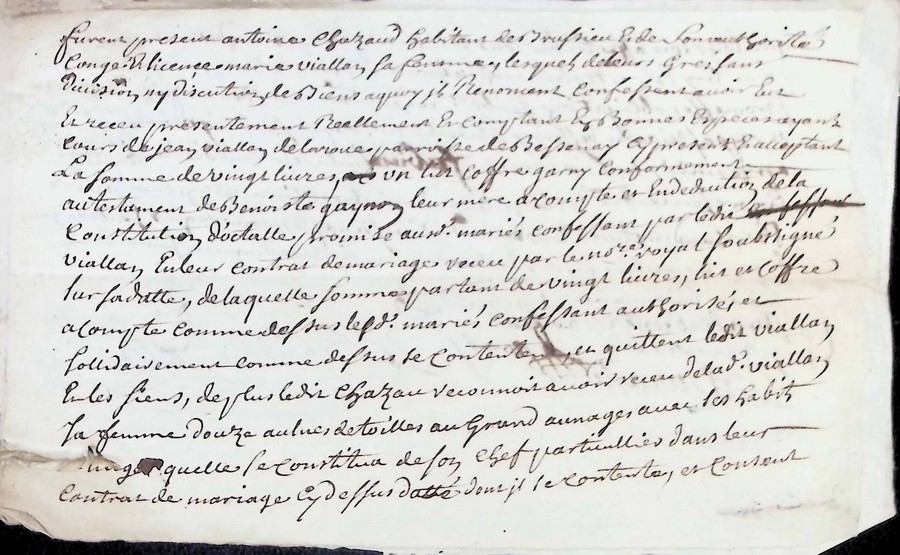 furent present antoine Chazaud habitant de Brussieu Et de Son authorité
Congé Et licence marie viallon sa femme, lesquels de leurs Grés sans
division ny discution de Biens a quoy jls Renoncent Confessent avoir Eut
Et receu presentement Reallement Et Comptant En Bonnes Especes ayant
Cours de jean viallon parroisse de Bessenay Cy present Et acceptant
La somme de vingt livres, un lit coffre garny Conformement
au testament de Benoiste gaynon leur mere a compte et En deduction de la
Constitution dottalle promise ausd. mariés confessant par ledit
viallon En leur contrat de mariage receu par le nore. royal soubsigné
sur sa datte, de laquelle somme partant de vingt livres, lit et Coffre
a compte comme dessus lesd. mariés confessant authorisé, et
sollidairement comme dessus se contentent, et quittent ledit viallon
Et les siens, de plus ledit Chazau reconnoit avoir receu de lad. viallon
sa femme douze aulnes de toilles au Grand aunages avec ses habit
quelle se constitua de son Chef particullier dans leur
Contrat de mariage Cy dessus datté dont jl se contente, et consent